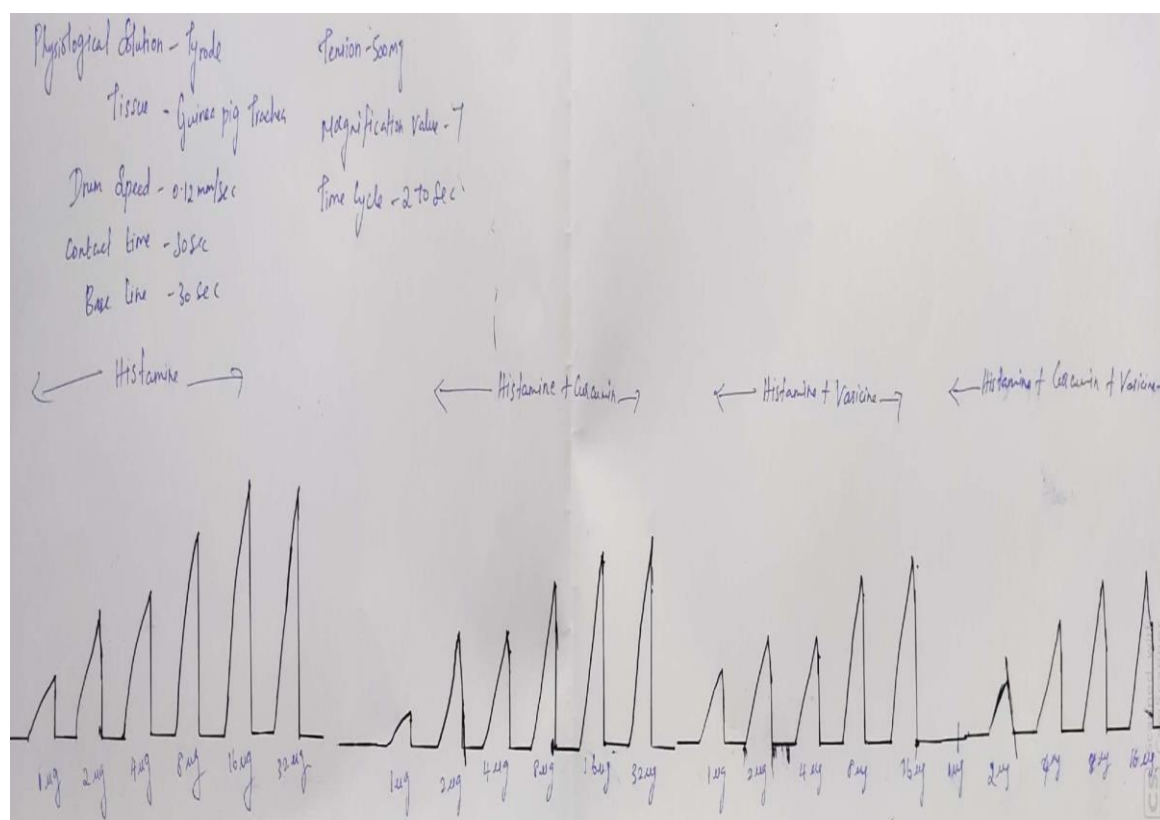 Physiological Solution - Tyrode
Tissue - Guinea pig Trachea
Drum Speed - 0.12 mm/sec
Contact time - 30 sec
Base line - 30 sec
Tension - 500mg
Magnification Value - 7
Time Cycle - 270 Sec
Histamine
Histamine + Curcumin
Histamine + Vasicine
Histamine + Curcumin + Vasicine
1 µg 2 µg 4 µg 8 µg 16 µg 32 µg
1 µg 2 µg 4 µg 8 µg 16 µg 32 µg
1 µg 2 µg 4 µg 8 µg 16 µg
1 µg 2 µg 4 µg 8 µg 16 µg